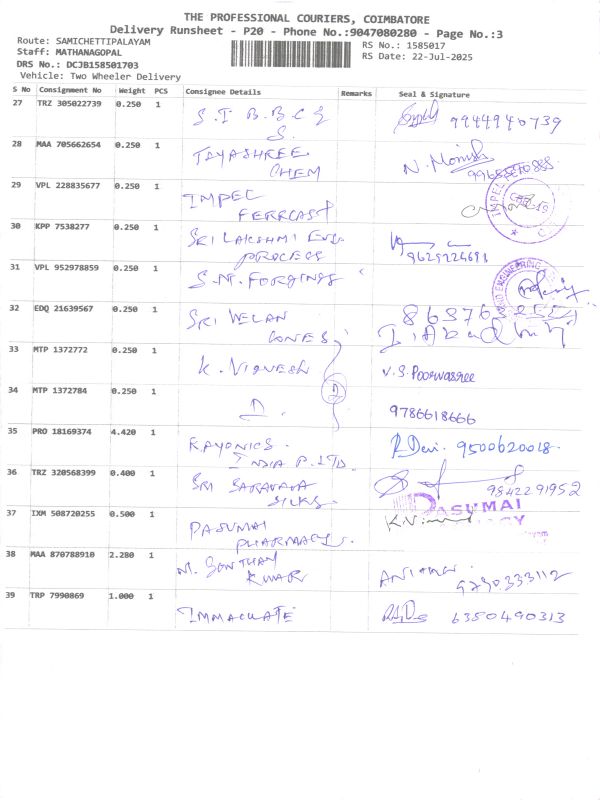 THE PROFESSIONAL COURIERS, COIMBATORE
Delivery Runsheet - P20 - Phone No.:9047080280 - Page No.:3
Route: SAMICHETTIPALAYAM
RS No.: 1585017
Staff: MATHANAGOPAL
RS Date: 22-Jul-2025
DRS No.: DCJB158501703
Vehicle: Two Wheeler Delivery
S No Consignment No Weight PCS Consignee Details Remarks Seal & Signature
27 TRZ 305022739 0.250 1
S.I B.B.C
S. 9944940739
28 MAA 705662654 0.250 1
JAYASHREE
CHEM
29 VPL 228835677 0.250 1
IMPEC
FERRCAST
30 KPP 7538277 0.250 1
SRI LAKSHMI
PROCESS 9629224691
31 VPL 952978859 0.250 1
S.M. FORGINGS
32 EDQ 21639567 0.250 1
SRI VELAN
CONES
33 MTP 1372772 0.250 1
K. VIGNESH V.S. Poorvasree
34 MTP 1372784 0.250 1
D. 9786618666
35 PRO 18169374 4.420 1
RAYONICS R. Devi. 9500620018.
INDIA P. LTD.
36 TRZ 320568399 0.400 1
SRI SARAVANA
SILKS. 9842291952
37 IXM 508720255 0.500 1
PASUMAI
PASUMAI
PHARMACY.
38 MAA 870788910 2.280 1
M. SENTHAN
KUMAR 9790333112
39 TRP 7990869 1.000 1
IMMACULATE 6350490313